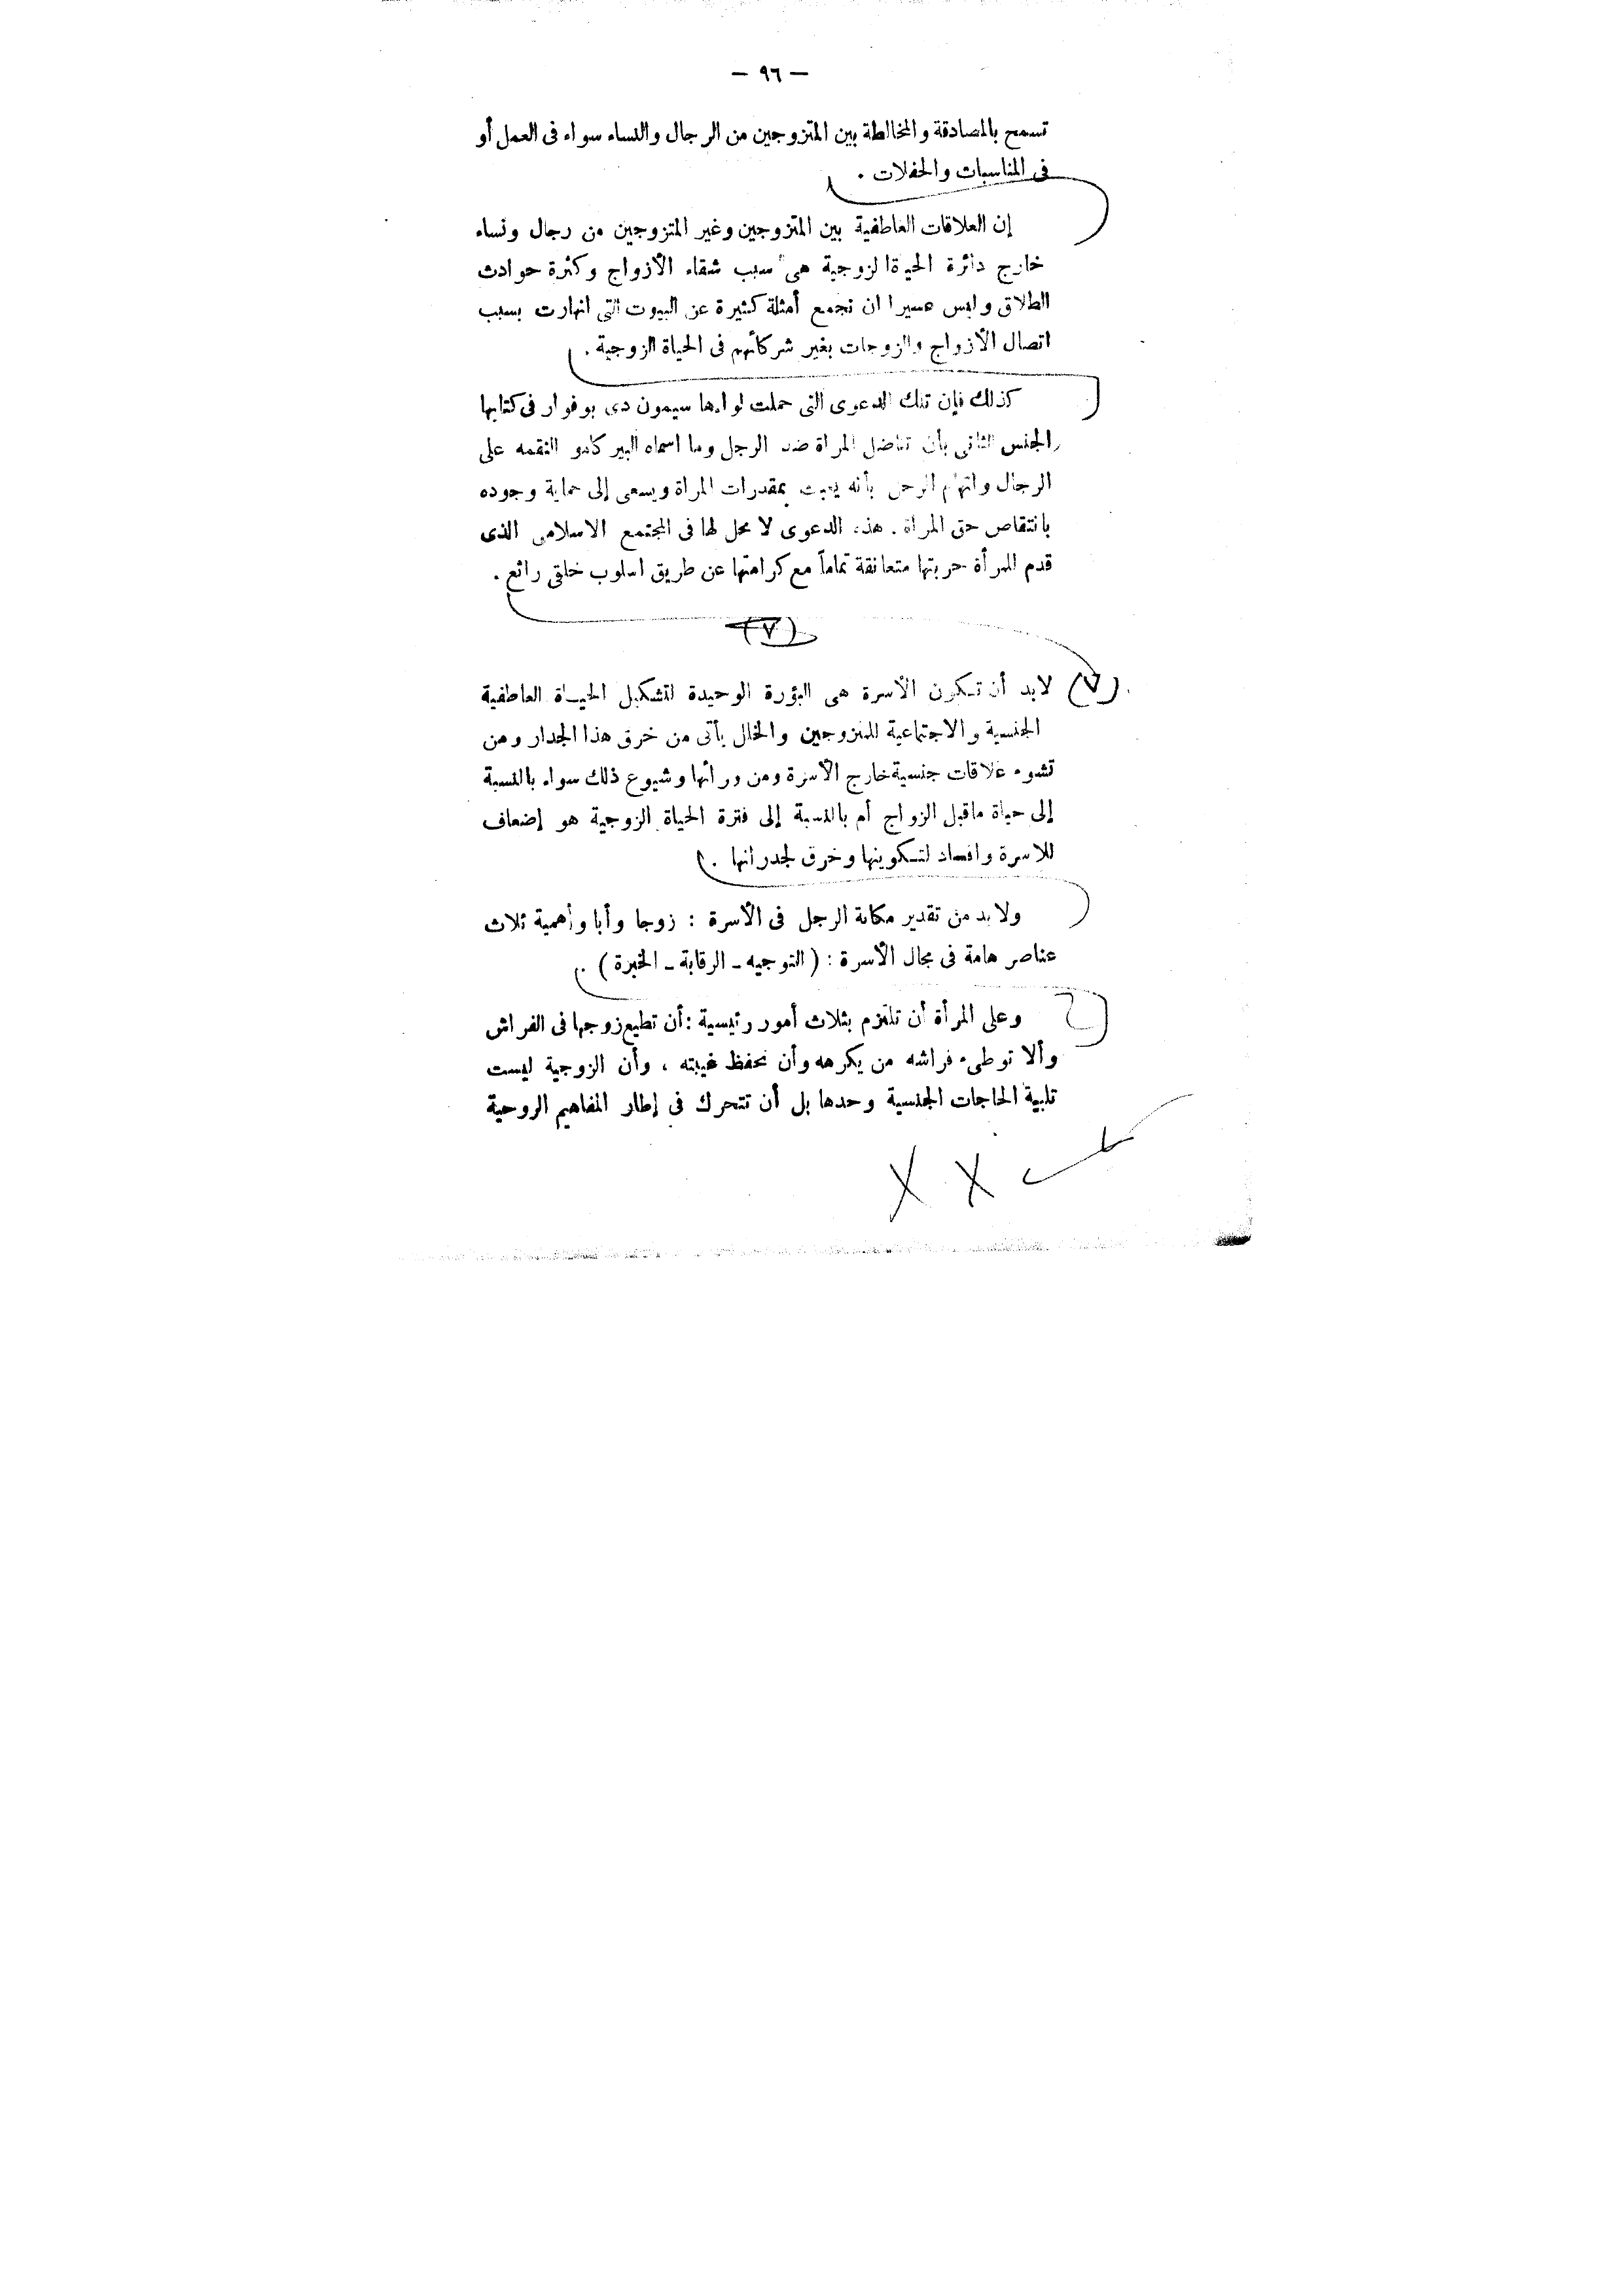 — ٩٦ —
تسمح بالمصادقة والمخالطة بين المتزوجين من الرجال والنساء سواء فى العمل أو
فى المناسبات والحفلات .
إن العلاقات العاطفية بين المتزوجين وغير المتزوجين من رجال ونساء
خارج دائرة الحياة الزوجية هى سبب شقاء الأزواج وكثرة حوادث
الطلاق وليس عسيرا ان نجمع أمثلة كثيرة عن البيوت التى انهارت بسبب
اتصال الأزواج والزوجات بغير شركائهم فى الحياة الزوجية .
كذلك فإن تلك الدعوى التى حملت لواءها سيمون دى بوفوار فى كتابها
الجنس الثانى بأن تناضل المراة ضد الرجل وما اسماه البير كامو النقمه على
الرجال واتهام الرجل بأنه يعبث بمقدرات المراة ويسعى إلى حماية وجوده
بانتقاص حق المراة . هذه الدعوى لا محل لها فى المجتمع الاسلامى الذى
قدم للمرأة حريتها متعانقة تماماً مع كرامتها عن طريق اسلوب خلقى رائع .
(٧)
(٧) لابد أن تكون الأسرة هى البؤرة الوحيدة لتشكيل الحياة العاطفية
الجنسية والاجتماعية للمتزوجين والخلل يأتى من خرق هذا الجدار ومن
نشوء علاقات جنسية خارج الأسرة ومن ورائها وشيوع ذلك سواء بالنسبة
إلى حياة ماقبل الزواج أم بالنسبة إلى فترة الحياة الزوجية هو إضعاف
للاسرة وافساد لتكوينها وخرق لجدرانها .
ولابد من تقدير مكانة الرجل فى الأسرة : زوجا وأبا وأهمية ثلاث
عناصر هامة فى مجال الأسرة : ( التوجيه ـ الرقابة ـ الخبرة ) .
وعلى المرأة أن تلتزم بثلاث أمور رئيسية : أن تطيع زوجها فى الفراش
وألا توطىء فراشه من يكرهه وأن تحفظ غيبته ، وأن الزوجية ليست
تلبية الحاجات الجنسية وحدها بل أن تتحرك فى إطار المفاهيم الروحية